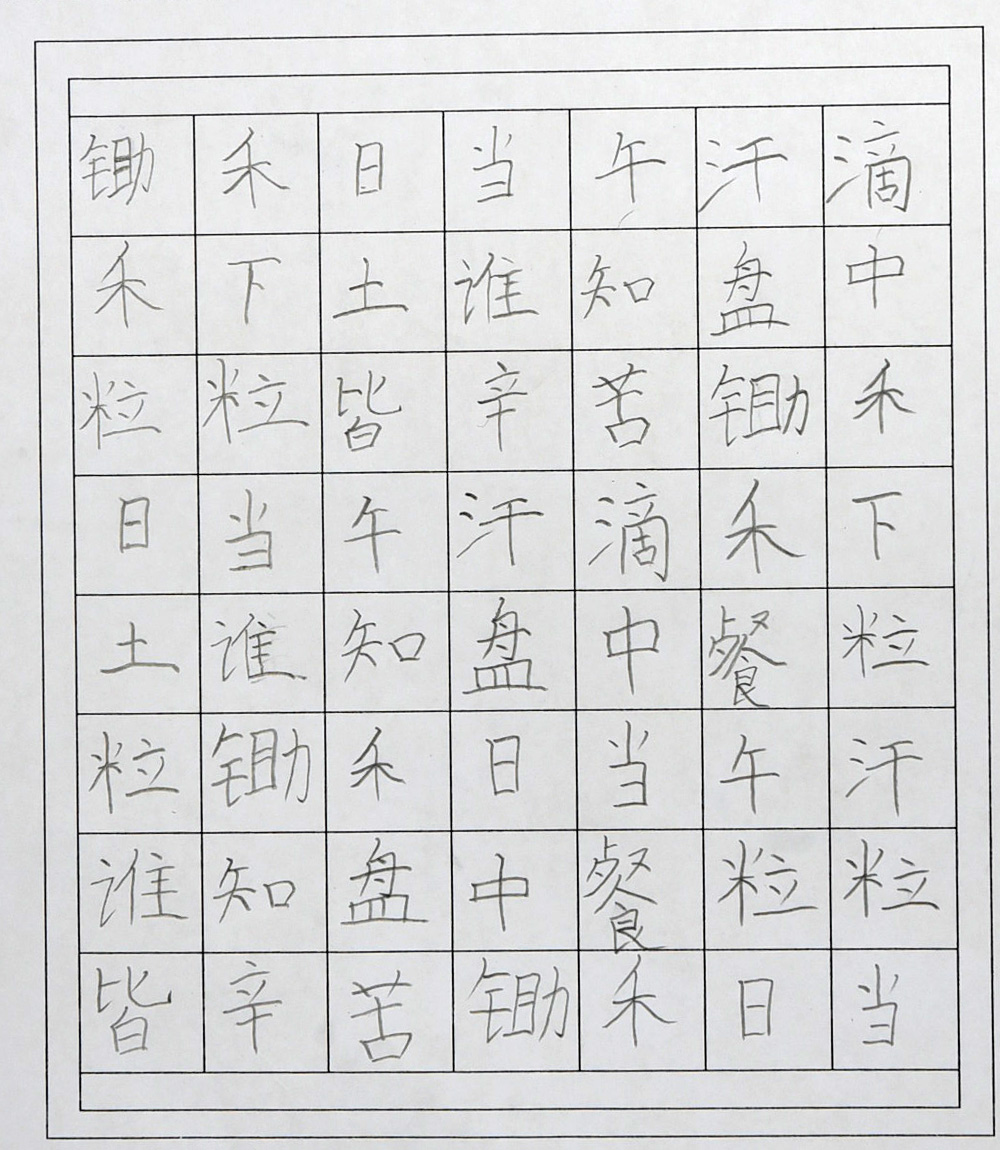 锄禾日当午汗滴
禾下土谁知盘中
粒粒皆辛苦锄禾
日当午汗滴禾下
土谁知盘中餐粒
粒锄禾日当午汗
谁知盘中餐粒粒
皆辛苦锄禾日当